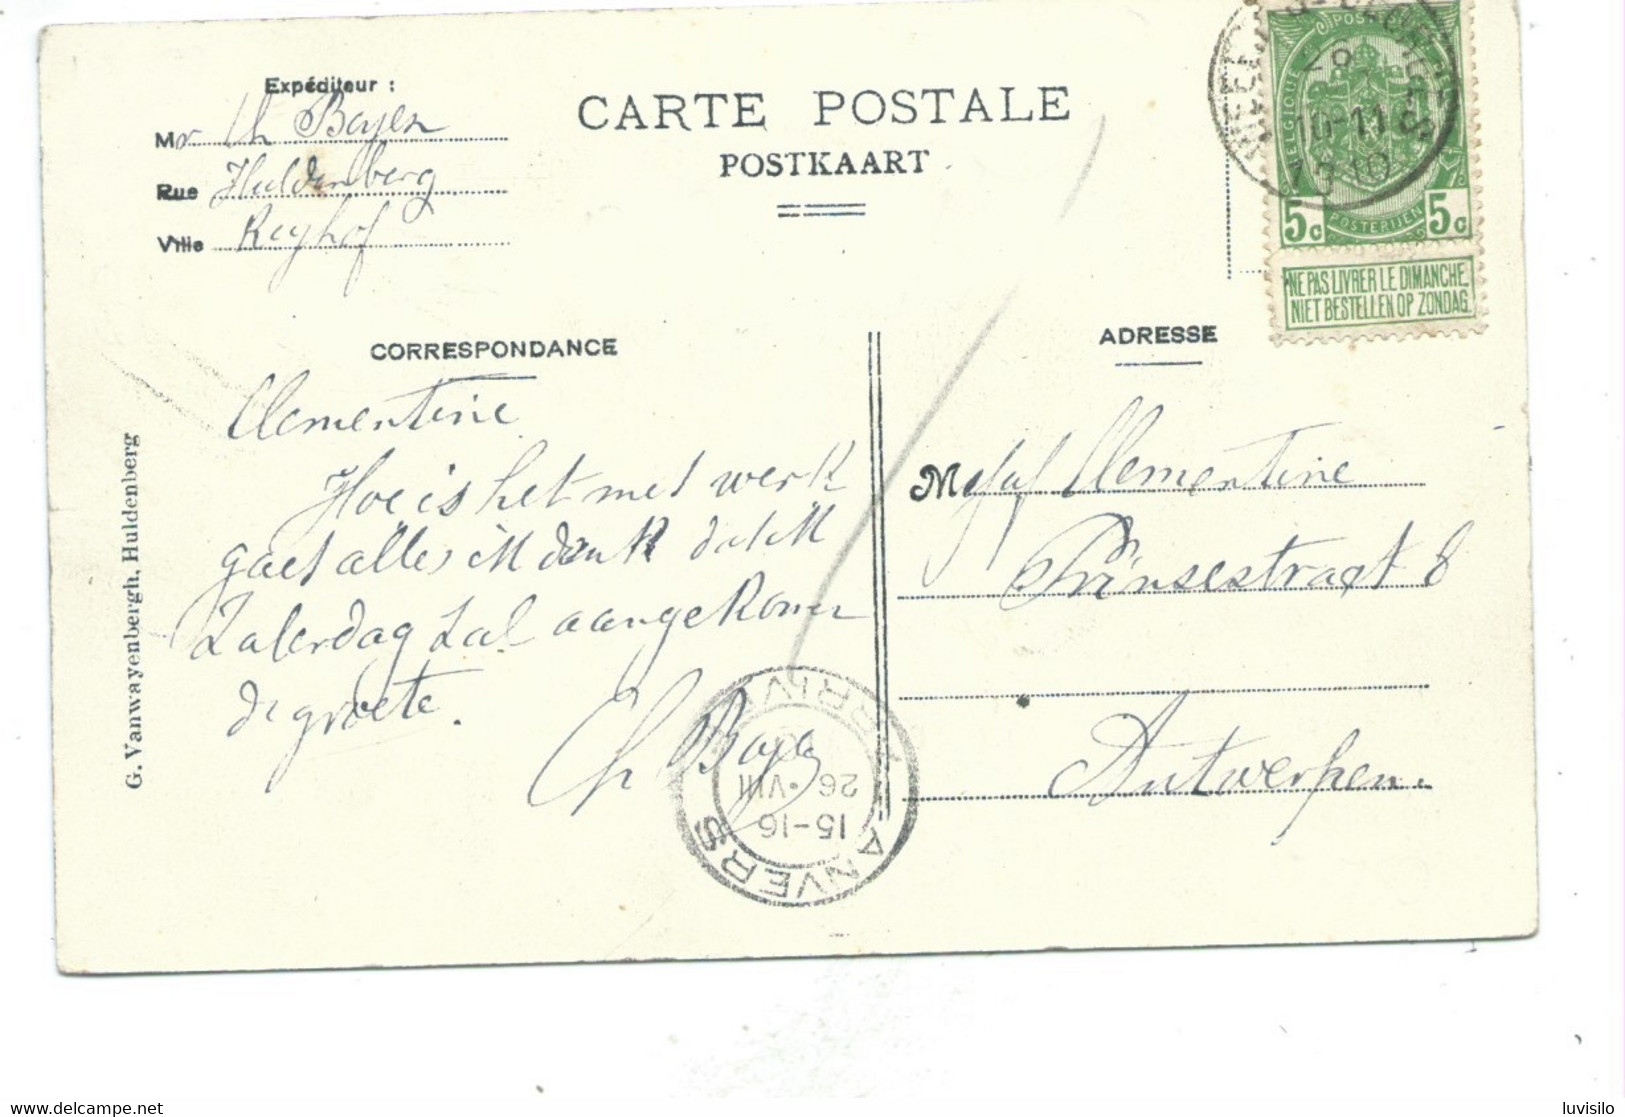 Expéditeur :
Mr Ch Boyen
Rue Huldenberg
Ville
CARTE POSTALE
POSTKAART
BELGIQUE POSTES
10-11
1910
5c POSTERIJEN 5c
NE PAS LIVRER LE DIMANCHE.
NIET BESTELLEN OP ZONDAG.
CORRESPONDANCE
Clementine
Hoe is het met werk
gaet alles ik denk dat ik
Zaterdag zal aangekomen
de groete.
Ch Boyen
G. Vanwayenbergh, Huldenberg
ANVERS ARRIVÉE
15-16
26 VIII
10
ADRESSE
M Juf Clementine
Prinsestraat 8
Antwerpen.
luvisilo